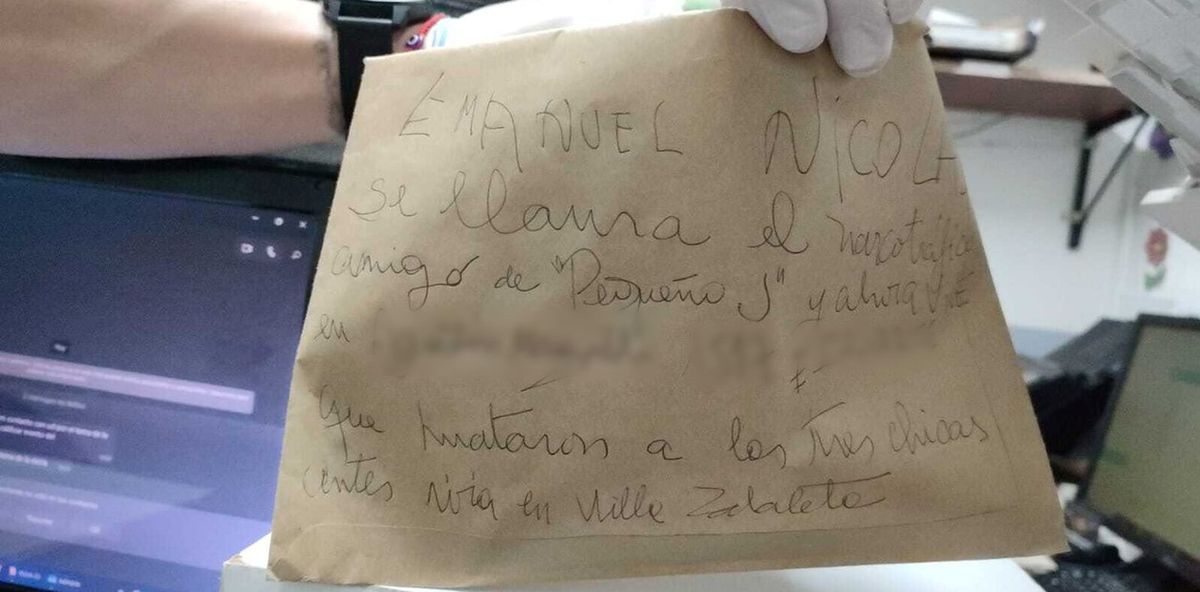 EMANUEL NICOLA
se llama el narcotrafica
amigo de "Pequeño J" y ahora VIVE
en
que mataron a las tres chicas
antes vivia en Villa Zabaleta